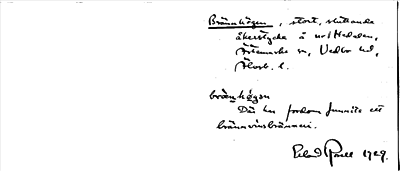 Brännhögen, stort, sluttande
åkerstycke å nr 1 Hedalen,
Ärtemarks sn, Vedbo hd,
Älvsb. l.
brännhögen
Där har fordom funnits ett
brännvinsbränneri.
Erland 1929.